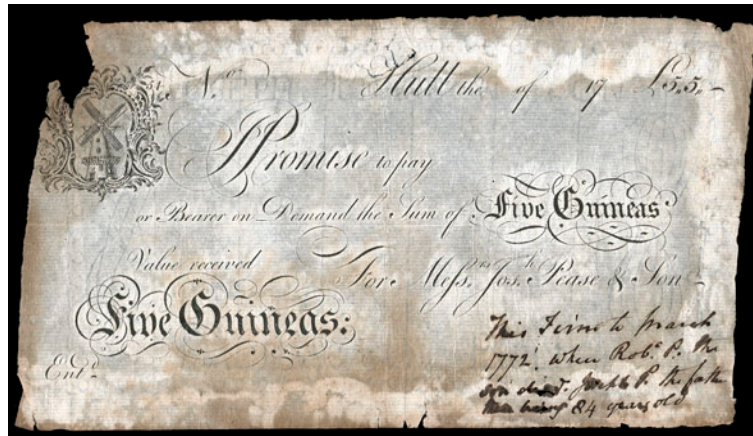 N.o Hull the of 17 £5„5„-
I Promise to pay
or Bearer on Demand the Sum of Five Guineas
Value received For Mess.rs Jos.h Pease & Son
Five Guineas:
Ent.d
This Firm to March
1772. When Rob.t P. the
son died. Joseph P. the father
then being 84 years old